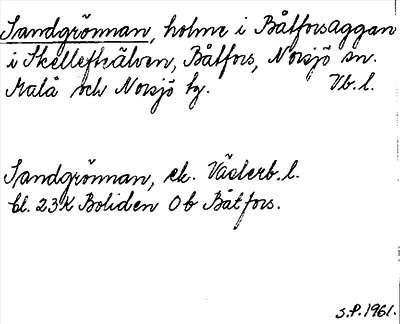 Sandgrönnan, holme i Båtforsaggan
i Skellefteälven, Båtfors, Norsjö sn.
Malå och Norsjö tg. Vb. l.
Sandgrönnan, ek. Västerb. l.
bl. 23 K Boliden 0 b Båtfors.
S.P. 1961.